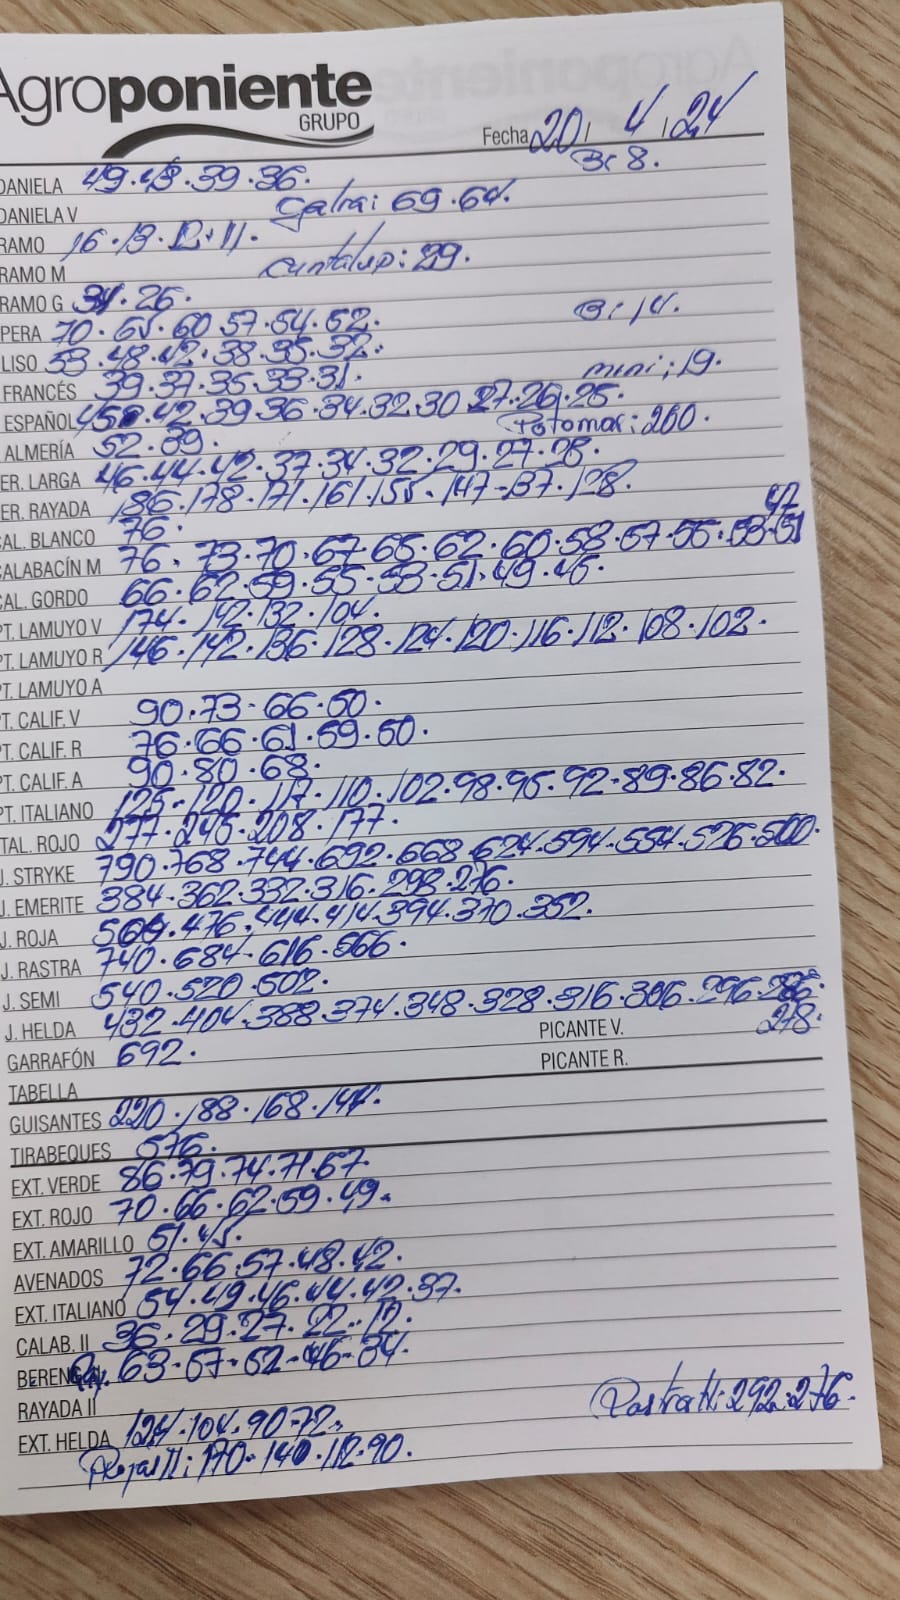 Agroponiente
GRUPO
Fecha 20 / 4 / 24
B: 8.
DANIELA 49.43.39.36.
DANIELA V Galia: 69.64.
RAMO 16.13.12.11.
RAMO M Cantalup: 29.
RAMO G 34.26.
B: 14.
PERA 70.65.60.57.54.52.
LISO 53.48.42.38.35.32.
mini: 19.
FRANCÉS 39.37.35.33.31.
ESPAÑOL 45.42.39.36.34.32.30.27.26.25.
Potomac: 260.
ALMERÍA 52.39.
ER. LARGA 46.44.42.37.34.32.29.27.25.
ER. RAYADA 186.178.171.161.155.147-137.128.
CAL. BLANCO 76.
47.
CALABACÍN M 76.73.70.67.65.62.60.58.57.55.53.51
CAL. GORDO 66.62.59.55-53.51.49.45.
PT. LAMUYO V 174.142.132.104.
PT. LAMUYO R 146.142.136.128.124.120.116.112.108.102.
PT. LAMUYO A
PT. CALIF. V 90.73-66.50.
PT. CALIF. R 76.66.61.59.50.
PT. CALIF. A 90.80.68.
PT. ITALIANO 125-120.117.110.102.98.95.92-89.86.82.
ITAL. ROJO 277.245.208.177.
J. STRYKE 790.768.744.692.668.624.594.554.526.500.
J. EMERITE 384.362.332.316.298.276.
J. ROJA 504.476.444.414.394.370.352.
J. RASTRA 740.684-616.566.
J. SEMI 540.520.502.
J. HELDA 432.404.388.374.348.328.316.306.296.286.
278.
PICANTE V.
GARRAFÓN 692.
PICANTE R.
TABELLA
GUISANTES 220.188.168.144.
TIRABEQUES 576.
EXT. VERDE 86.79.74.71.67.
EXT. ROJO 70.66.62.59.49.
EXT. AMARILLO 51.45.
AVENADOS 72.66.57.48.42.
EXT. ITALIANO 54.49.46.44.42.37.
CALAB. II 36.29.27.22.12.
BEREN 63-57-52-46-34.
RAYADA II
Rastra II: 292.276.
EXT. HELDA 124.104.90-72.
Rojas II: 170-140.112.90.